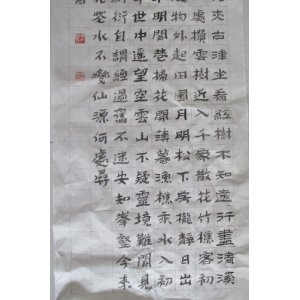 夾古津坐看紅樹不知遠行盡清溪
處攢雲樹近入千家散花竹樵客初
物外起田園月明松下房櫳靜日出
明閭巷掃花開薄暮漁樵乘水入初
世中遙望空雲山不疑靈境難聞見
衍自謂經過舊不迷安知峯壑今來
花水不辨仙源何處尋